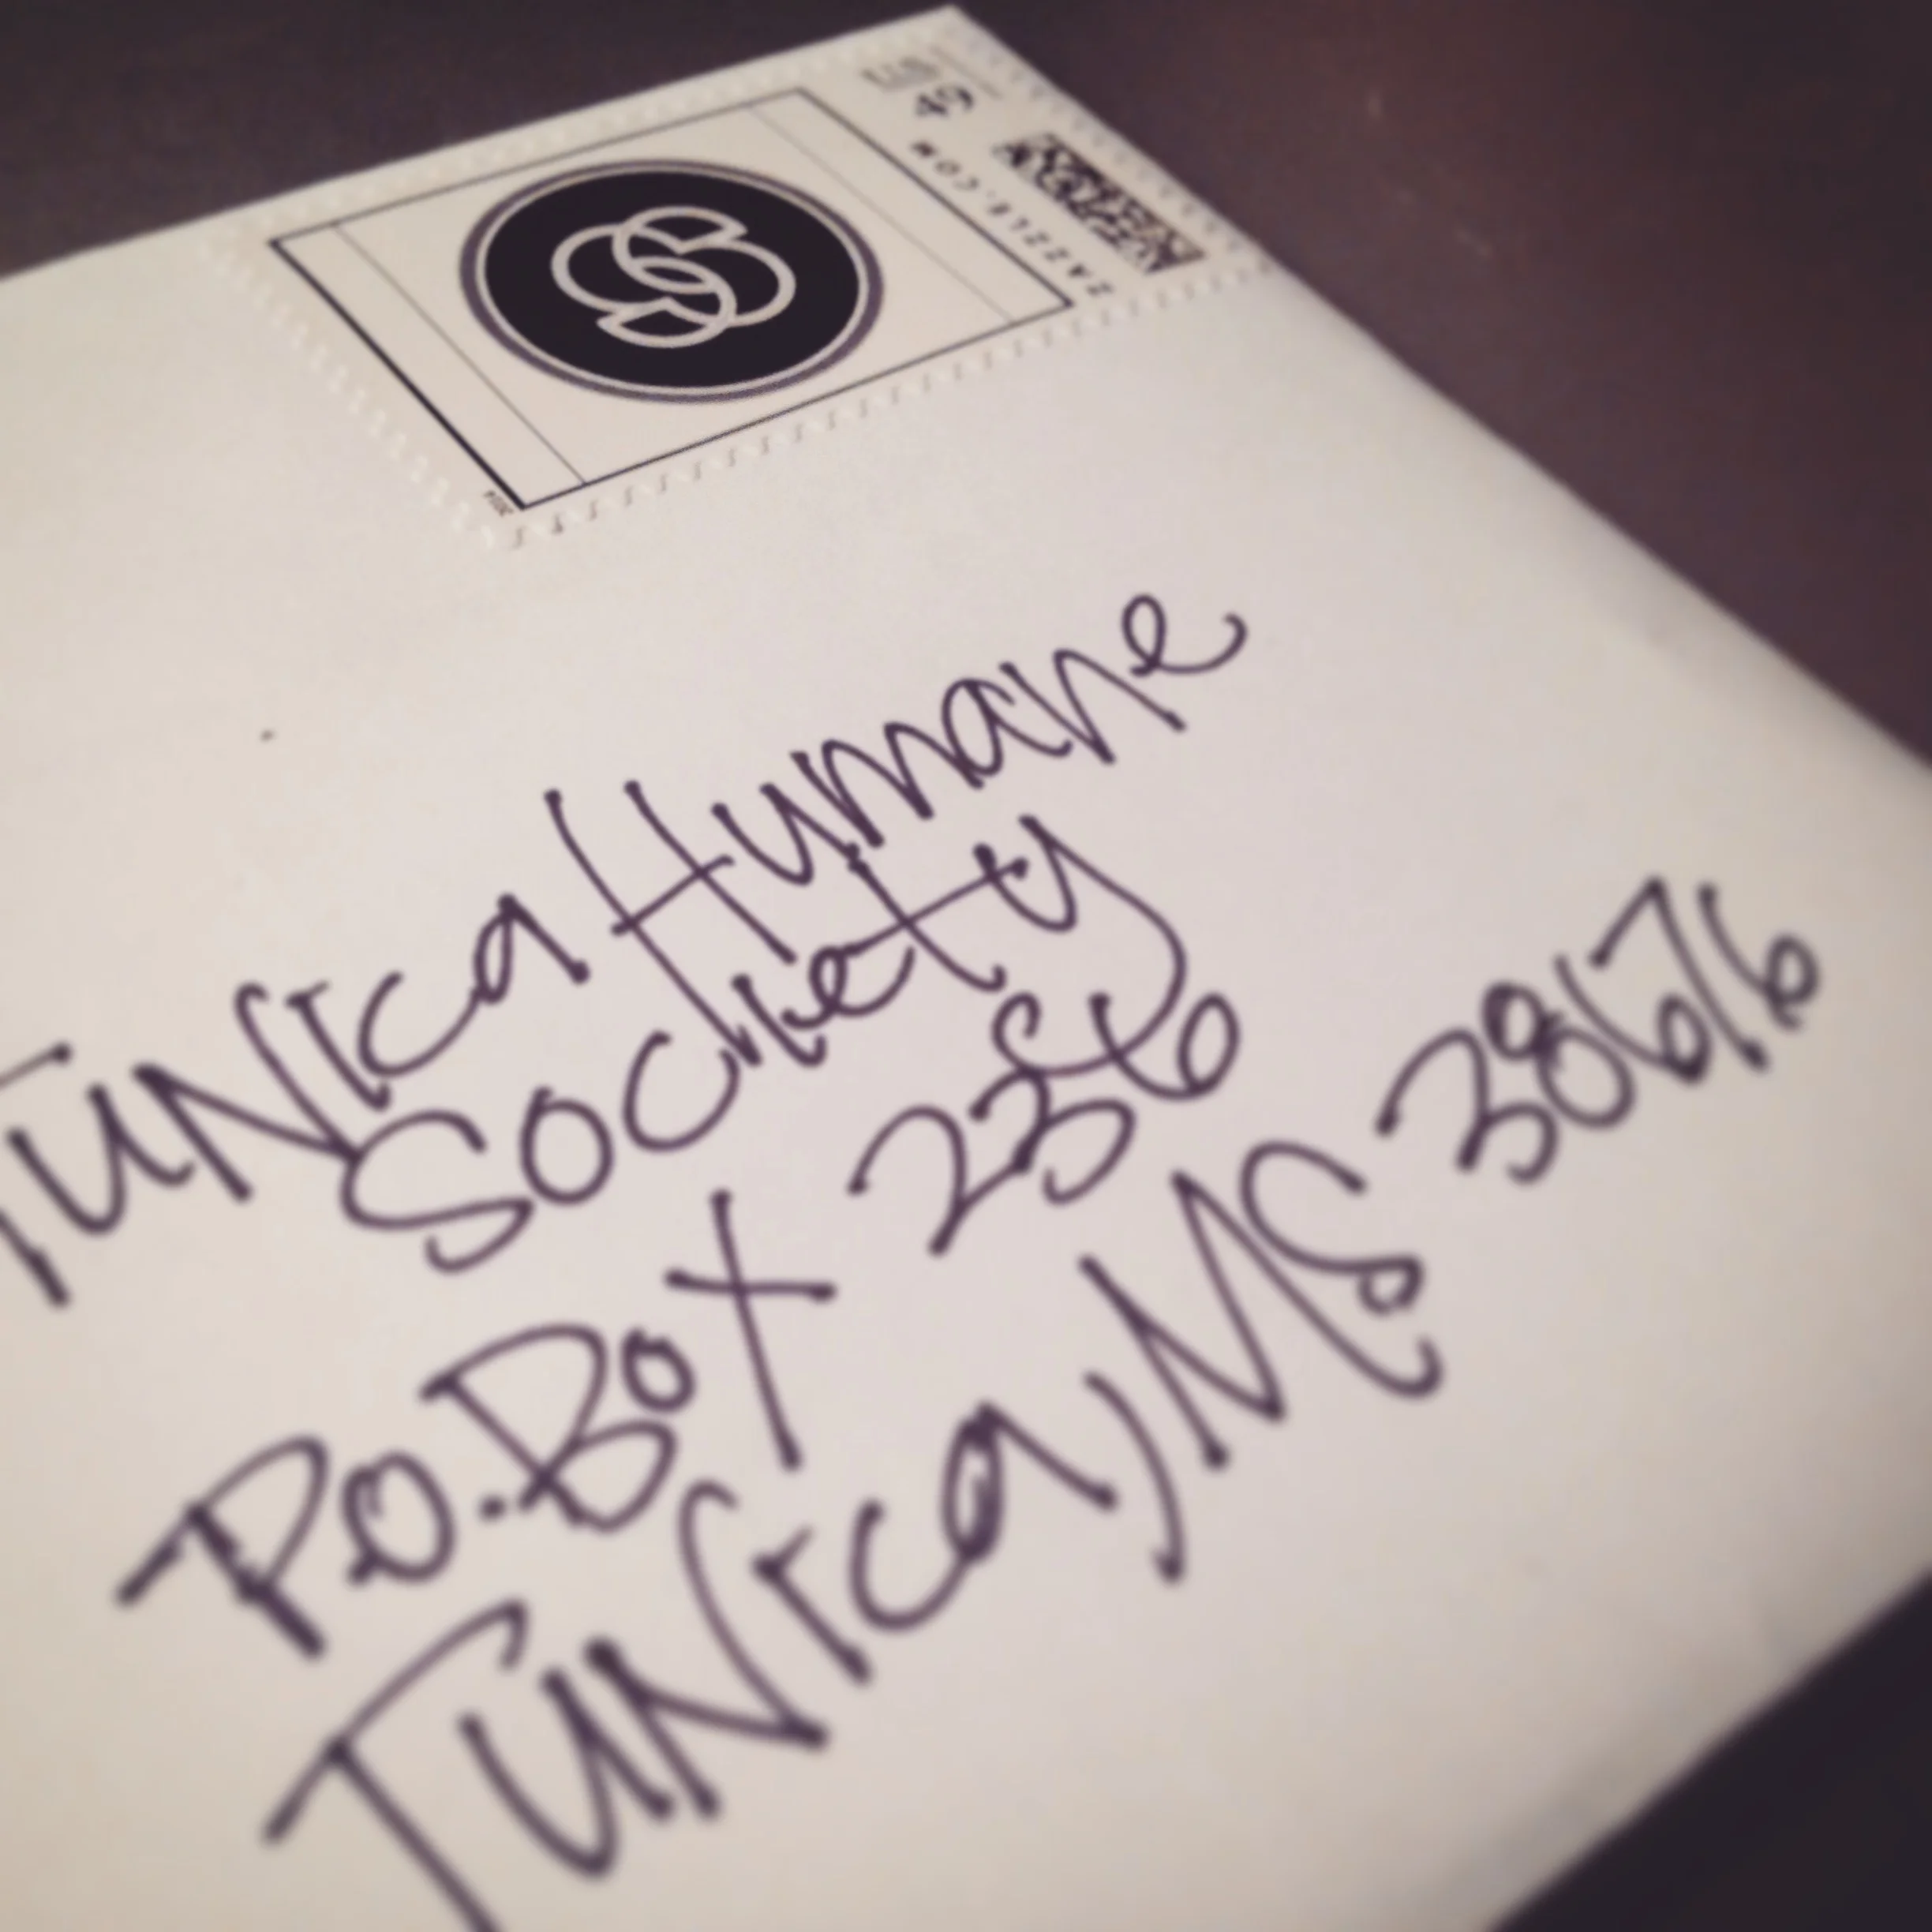 49
ZAZZLE.COM
2014
Tunica Humane
Society
P.O. Box 236
Tunica, MS 38676